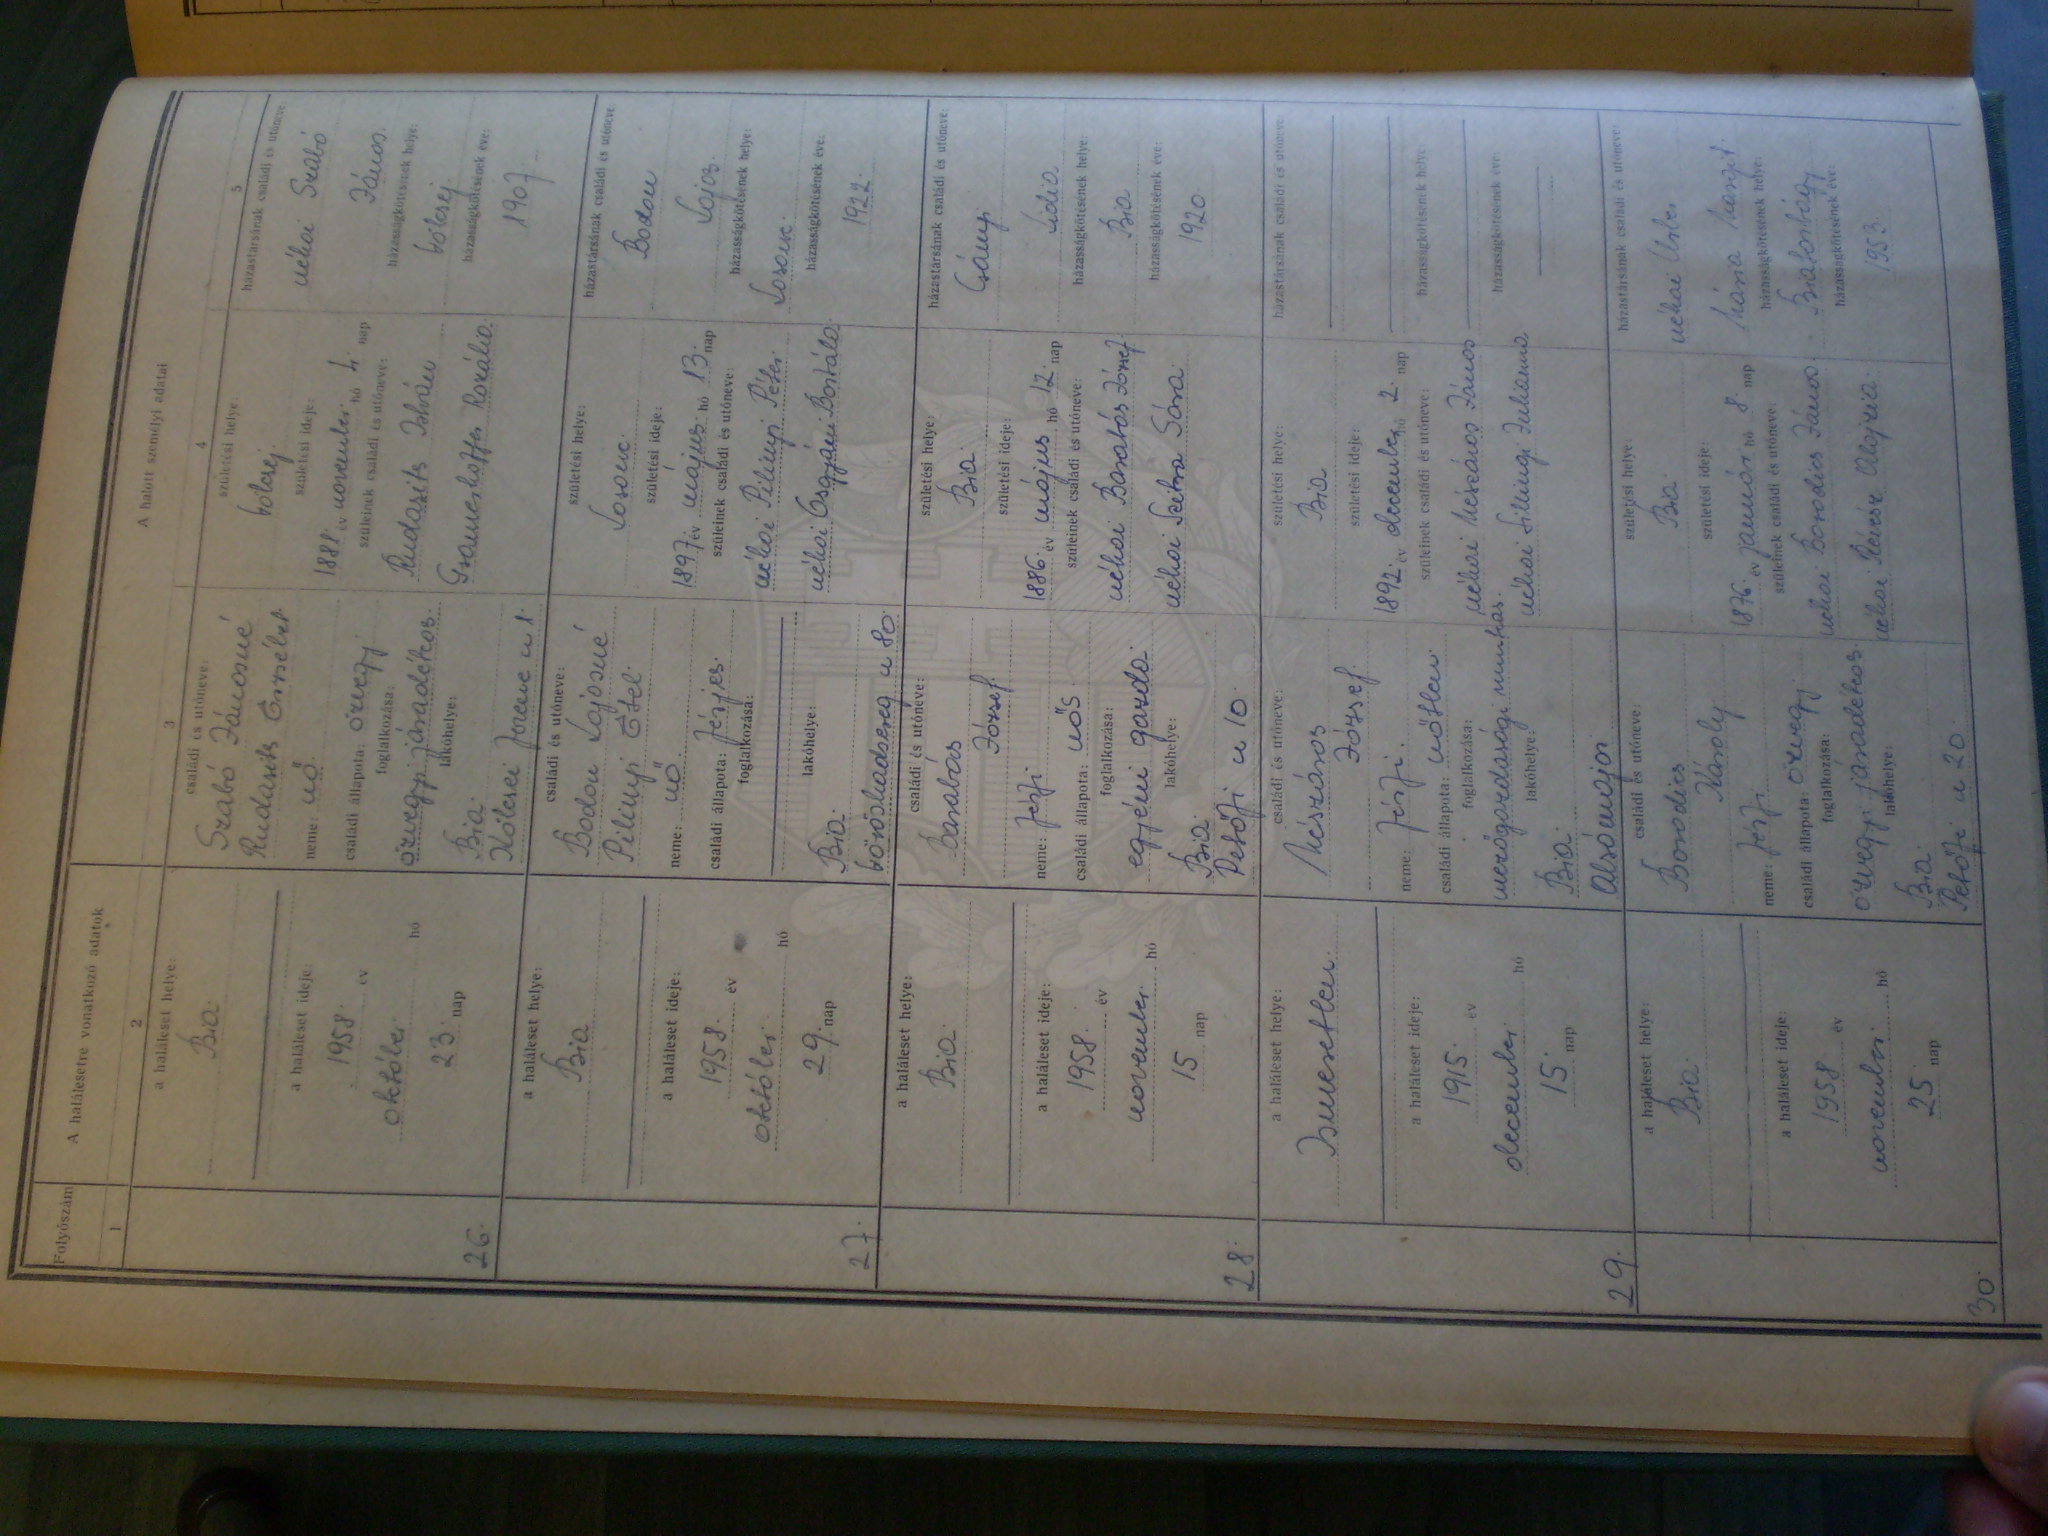 Folyószám
A halálesetre vonatkozó adatok
A halott személyi adatai
1
2
3
4
5
26.
a haláleset helye:
Bia.
a haláleset ideje:
1958. év
október hó
23. nap
családi és utóneve:
Szabó Jánosné
Rudasits Erzsébet
neme: nő.
családi állapota: özvegy
foglalkozása:
özvegyi járadékos.
lakóhelye:
Bia.
Kölcsei Ferenc u 1.
születési helye:
születési ideje:
1888. év november hó 4. nap
szüleinek családi és utóneve:
Rudasits István
Rozália.
házastársának családi és utóneve:
néhai Szabó
János.
házasságkötésének helye:
házasságkötésének éve:
1907.
27.
a haláleset helye:
Bia
a haláleset ideje:
1958. év
október hó
29. nap
családi és utóneve:
Bodon Lajosné
Pilinyi Etel.
neme: nő
családi állapota: férjes.
foglalkozása:
lakóhelye:
Bia.
Vöröshadsereg u 80.
születési helye:
Losonc.
születési ideje:
1897. év május hó 13. nap
szüleinek családi és utóneve:
néhai Pilinyi Péter
néhai Borbála.
házastársának családi és utóneve:
Bodon
Lajos.
házasságkötésének helye:
Losonc.
házasságkötésének éve:
1922.
28.
a haláleset helye:
Bia.
a haláleset ideje:
1958. év
november hó
15 nap
családi és utóneve:
Barabás
József.
neme: férfi
családi állapota: nős.
foglalkozása:
egyéni gazda.
lakóhelye:
Bia.
Petőfi u 10.
születési helye:
Bia.
születési ideje:
1886. év május hó 12. nap
szüleinek családi és utóneve:
néhai Barabás József
néhai Sára.
házastársának családi és utóneve:
Csányi
Lidia
házasságkötésének helye:
Bia
házasságkötésének éve:
1920.
29.
a haláleset helye:
Ismeretlen.
a haláleset ideje:
1915. év
december hó
15. nap
családi és utóneve:
Mészáros
József.
neme: férfi.
családi állapota: nőtlen.
foglalkozása:
mezőgazdasági munkás.
lakóhelye:
Bia.
Alsómajor
születési helye:
Bia
születési ideje:
1892. év december hó 2. nap
szüleinek családi és utóneve:
néhai Mészáros János
néhai Julianna
házastársának családi és utóneve:
házasságkötésének helye:
házasságkötésének éve:
30.
a haláleset helye:
Bia.
a haláleset ideje:
1958. év
november hó
25. nap
családi és utóneve:
Borodics
Károly
neme: férfi
családi állapota: özvegy.
foglalkozása:
özvegyi járadékos.
lakóhelye:
Bia.
Petőfi u 20.
születési helye:
Bia.
születési ideje:
1876. év január hó 8. nap
szüleinek családi és utóneve:
néhai Borodics János.
néhai Alojzia.
házastársának családi és utóneve:
néhai
Mária Margit.
házasságkötésének helye:
Biatorbágy.
házasságkötésének éve:
1953.